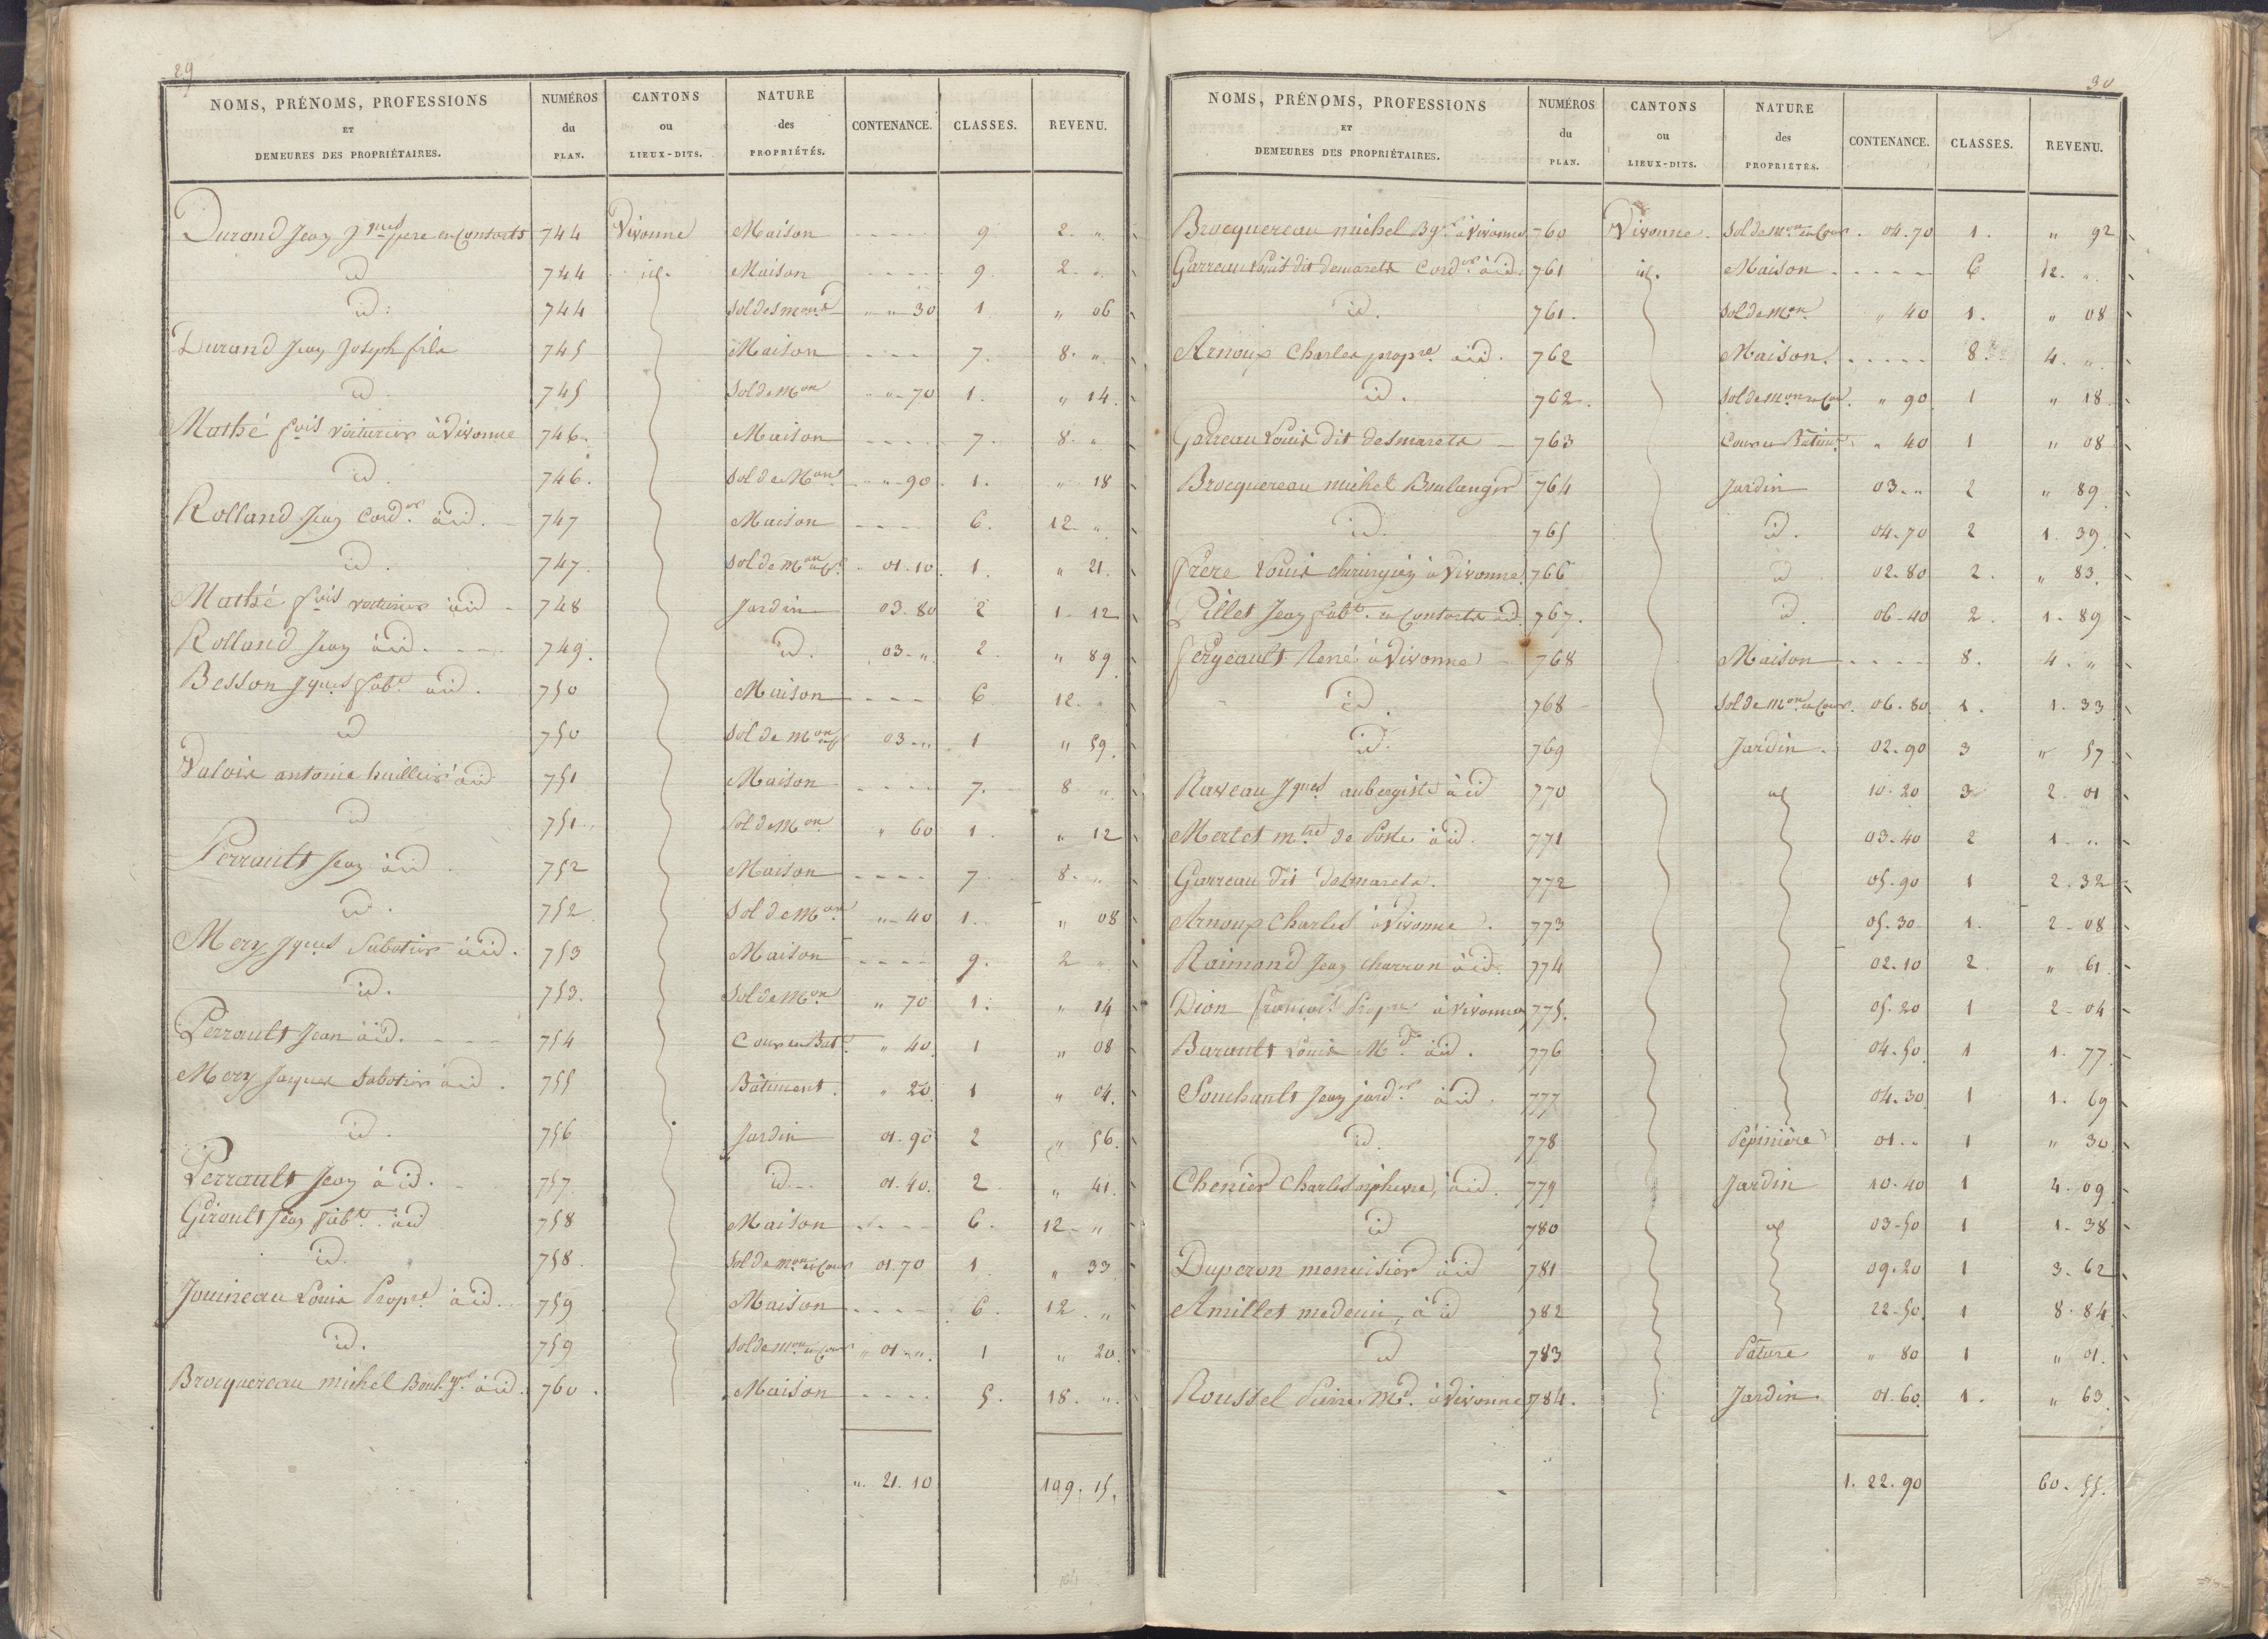 29
NOMS, PRÉNOMS, PROFESSIONS ET DEMEURES DES PROPRIÉTAIRES. | NUMÉROS du PLAN. | CANTONS ou LIEUX-DITS. | NATURE des PROPRIÉTÉS. | CONTENANCE. | CLASSES. | REVENU.
Durand Jean Jques pere et Consorts 744 Vivonne Maison - - - - 9 2. "
id 744 id. Maison - - - - 9 2. "
id. 744 Sol des mons " " 30 1 " 06
Durand Jean Joseph fils 745 Maison - - - 7. 8. "
id. 745 Sol de Mon " " 70 1. " 14.
Mathé fois voiturier à Vivonne 746. Maison - - - - 7. 8. "
id. 746. Sol de Mon " " 90 1. " 18
Rolland Jean Cordier à id. 747 Maison - - - - 6. 12. "
id. 747. Sol de Mon et Cr 01.10 1. " 21.
Mathé fois voiturier à id 748 Jardin 03.80 2 1. 12
Rolland Jean à id. 749. id. 03. " 2. " 89
Besson Jques fabt à id. 750 Maison - - - - 6 12. "
id 750 Sol de Mon et Cr 03. " 1 " 59.
Valois antoine huillier à id 751 Maison - - - - 7. 8 "
id 751. Sol de Mon " 60 1. " 12
Perrault Jean à id. 752 Maison - - - - 7. 8. "
id. 752 Sol de Mon " 40 1. " 08
Mery Jques Sabotier à id. 753 Maison - - - - 9. 2 "
id. 753. Sol de Mon " 70 1. " 14
Perrault Jean à id. - - - 754 Cour et Bat. " 40 1 " 08
Mery Jacques Sabotier à id. 755 Bâtiment. " 20 1 " 04.
id. 756 Jardin 01.90 2 " 56.
Perrault Jean à id. 757 id. 01.40. 2 " 41.
Girault Jean fabt à id 758 Maison - - - - 6. 12. "
id. 758. Sol de mon et Cour 01.70 1 " 33
Jouineau Louis Propre à id. 759 Maison - - - - 6. 12. "
id. 759 Sol de mon et Cour " 01. " 1 " 20.
Brocquereau michel Boulger à id. 760. Maison - - - - 5. 18. "
". 21.10 109.15.
30
NOMS, PRÉNOMS, PROFESSIONS ET DEMEURES DES PROPRIÉTAIRES. | NUMÉROS du PLAN. | CANTONS ou LIEUX-DITS. | NATURE des PROPRIÉTÉS. | CONTENANCE. | CLASSES. | REVENU.
Brocquereau michel Bger à Vivonne 760 Vivonne. Sol de Mon et Cour. 04.70 1. " 92
Garreau Louis dit demarets Corder à id. 761 id. Maison - - - - 6 12. "
id. 761. Sol de Mon " 40 1. " 08
Arnoux Charles propre à id. 762 Maison. - - - - 8. 4. "
id. 762. Sol de Mon et Cour. " 90 1 " 18
Garreau Louis dit desmarets - 763 Cour et Bâtiment " 40 1 " 08
Brocquereau michel Boulanger 764 Jardin 03. " 2 " 89
id. 765 id. 04.70 2 1. 39.
frere Louis chirurgien à Vivonne 766 id 02.80 2. " 83.
Pillet Jean fabt et Consorts à id. 767. id. 06.40 2. 1. 89
fergeault René à Vivonne 768 Maison - - - - 8. 4. "
id. 768 Sol de Mon et Cour. 06.80. 1. 1. 33
id. 769 Jardin. 02.90 3 " 57.
Raveau Jques aubergiste à id 770 id 10.20 3 2. 01
Merlet mtre de Poste à id. 771 03.40 2 1. "
Garreau dit desmarets. 772 05.90 1 2. 32
Arnoux Charles à Vivonne. 773 05.30 1. 2. 08
Raimond Jean charron à id. 774 02.10 2. " 61.
Dion françois Propre à Vivonne 775. 05.20 1 2. 04
Barault Louis Md. à id. 776 04.50. 1 1. 77.
Souchault Jean jardier à id. 777 04.30 1 1. 69
id. 778 Pépinière 01. " 1 " 30
Chenier Charles orphevre, à id. 779 Jardin 10.40 1 4. 09
id 780 id 03.50 1 1. 38
Duperon menuisier à id 781 09.20 1 3. 62
Amillet medecin, à id 782 22.50. 1 8. 84
id 783 Pâture " 80 1 " 01.
Roussel Pierre Md. à Vivonne 784. Jardin. 01.60. 1. " 63.
1. 22. 90 60. 55.